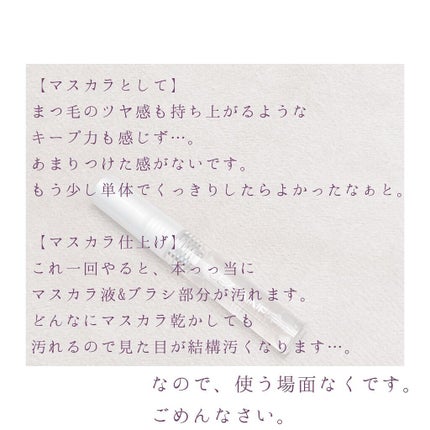 【マスカラとして】
まつ毛のツヤ感も持ち上がるような
キープ力も感じず…。
あまりつけた感がないです。
もう少し単体でくっきりしたらよかったなぁと。
【マスカラ仕上げ】
これ一回やると、本っっ当に
マスカラ液&ブラシ部分が汚れます。
どんなにマスカラ乾かしても
汚れるので見た目が結構汚くなります…。
なので、使う場面なくです。
ごめんなさい。